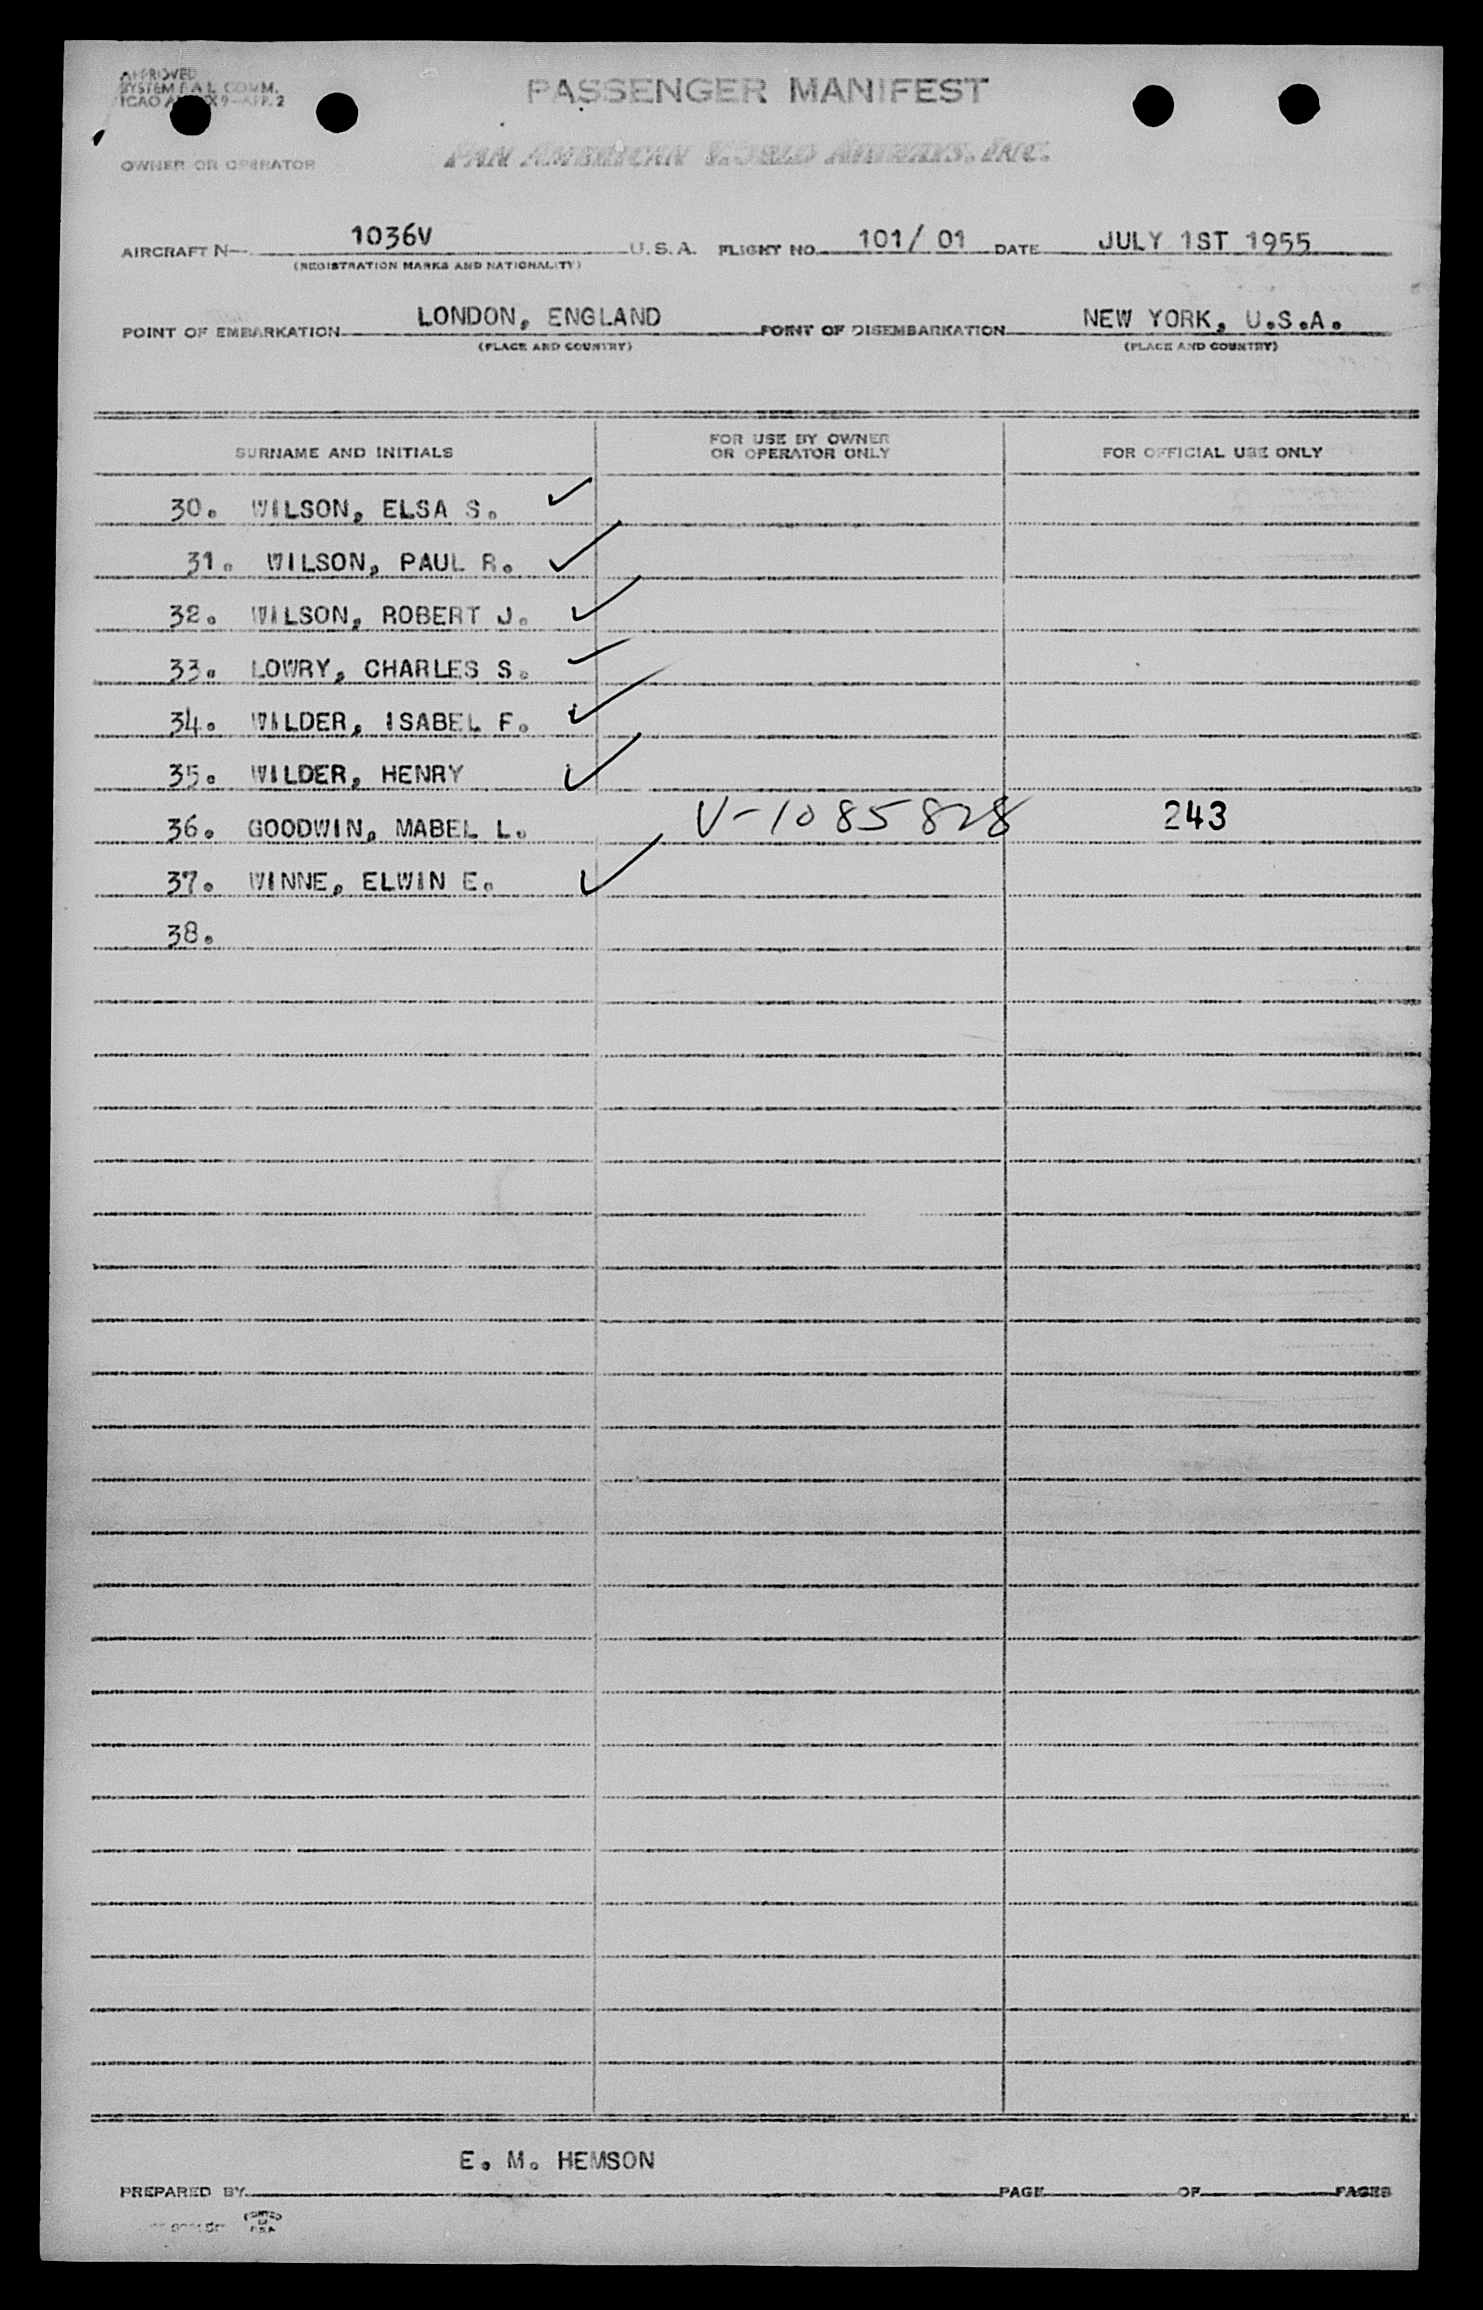 APPROVED
SYSTEM FAL COMM.
ICAO 9-APP. 2
PASSENGER MANIFEST
OWNER OR OPERATOR
PAN AMERICAN WORLD AIRWAYS, INC.
AIRCRAFT N— 1036V U.S.A. FLIGHT NO. 101/ 01 DATE JULY 1ST 1955
(REGISTRATION MARKS AND NATIONALITY)
POINT OF EMBARKATION LONDON, ENGLAND POINT OF DISEMBARKATION NEW YORK, U.S.A.
(PLACE AND COUNTRY) (PLACE AND COUNTRY)
SURNAME AND INITIALS FOR USE BY OWNER OR OPERATOR ONLY FOR OFFICIAL USE ONLY
30. WILSON, ELSA S. ✓
31. WILSON, PAUL R. ✓
32. WILSON, ROBERT J. ✓
33. LOWRY, CHARLES S. ✓
34. WILDER, ISABEL F. ✓
35. WILDER, HENRY ✓
36. GOODWIN, MABEL L. V-1085828 243
37. WINNE, ELWIN E. ✓
38.
E. M. HEMSON
PREPARED BY PAGE OF PAGES
PRINTED
IN
U.S.A.